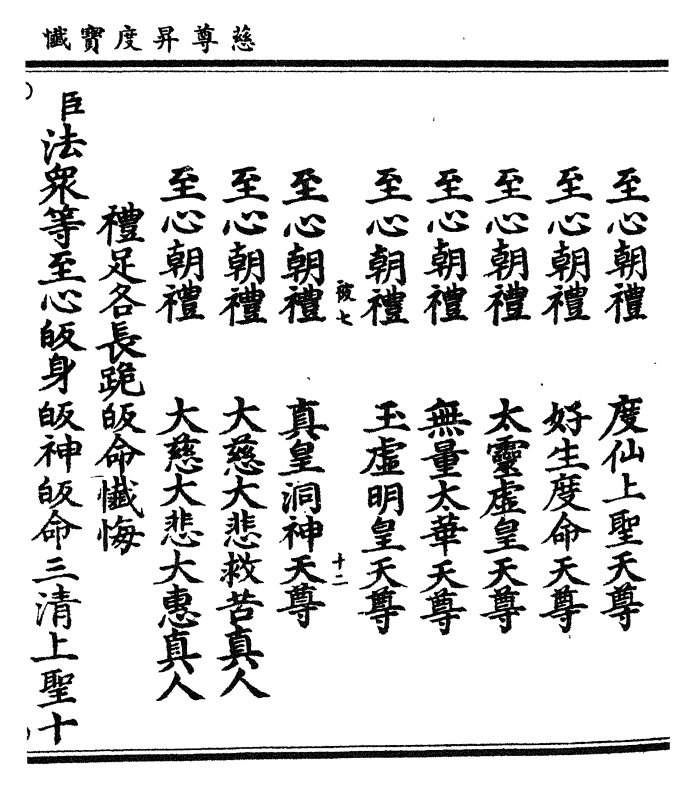 慈尊昇度寶懺
至心朝禮　度仙上聖天尊
至心朝禮　好生度命天尊
至心朝禮　太靈虛皇天尊
至心朝禮　無量太華天尊
至心朝禮　玉虛明皇天尊
皈七　十二
至心朝禮　真皇洞神天尊
至心朝禮　大慈大悲救苦真人
至心朝禮　大慈大悲大惠真人
禮足各長跪皈命懺悔
臣法眾等至心皈身皈神皈命三清上聖十